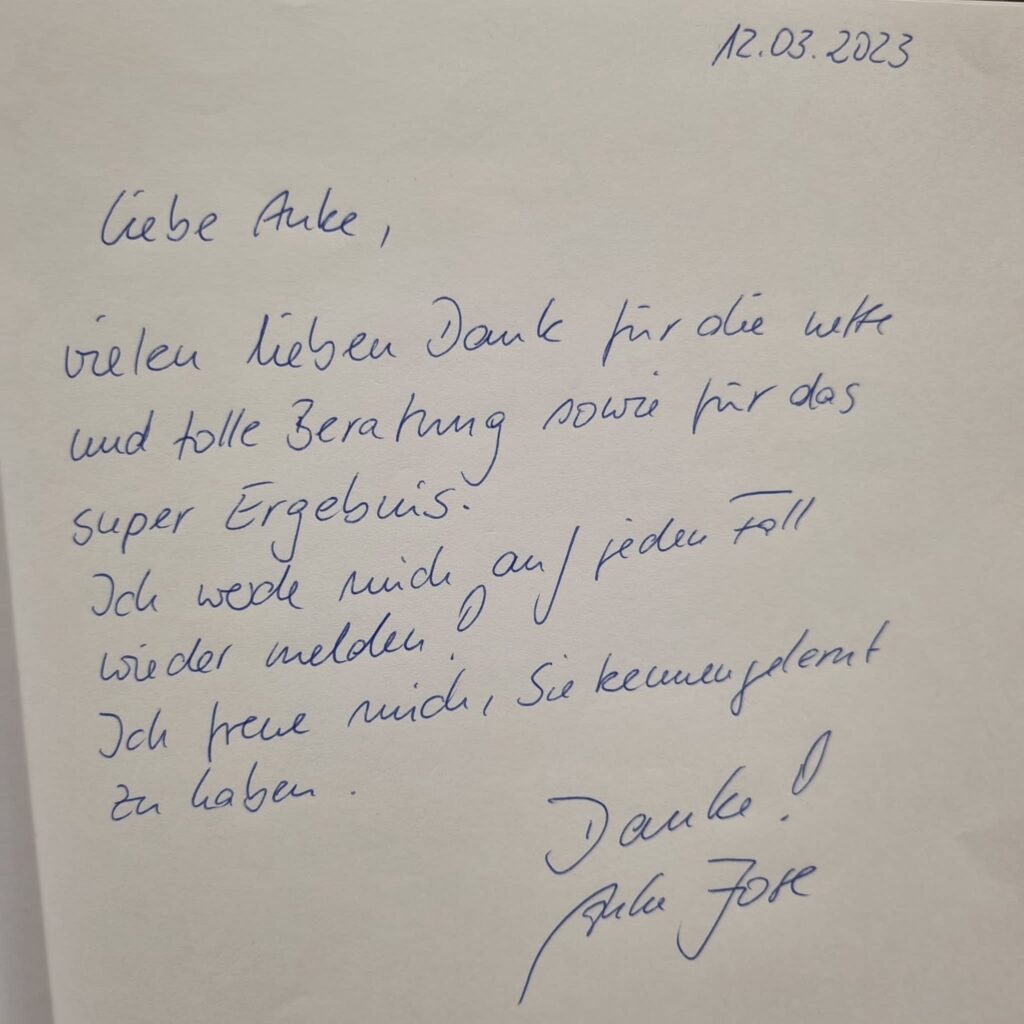 12.03.2023
Liebe Anke,
vielen lieben Dank für die nette
und tolle Beratung sowie für das
super Ergebnis.
Ich werde mich auf jeden Fall
wieder melden!
Ich freue mich, Sie kennengelernt
zu haben.
Danke!
Anke Jose